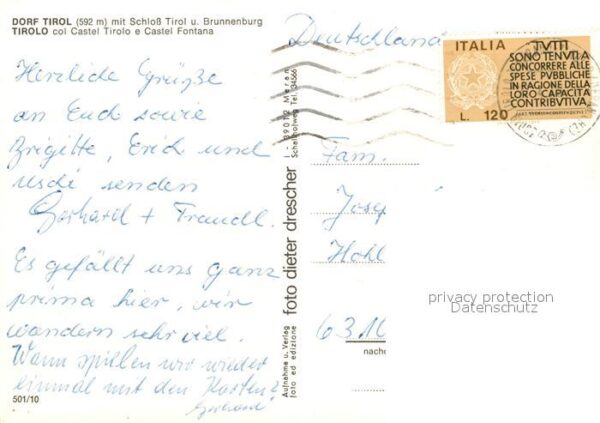 DORF TIROL (592 m) mit Schloß Tirol u. Brunnenburg
TIROLO col Castel Tirolo e Castel Fontana
Herzliche Grüße
an Euch sowie
Brigitte, Erich und
Uschi senden
Gerhard + Traudl.
Es gefällt uns ganz
prima hier, wir
wandern sehr viel.
Wann spielen wir wieder
einmal mit den Karten?
Gerhard
501/10
Aufnahme u. Verlag
foto ed edizione
foto dieter drescher
I 39012 Meran
Tel. 34566
Deutschland
ITALIA
L. 120
TVTTI
SONO TENVTI A
CONCORRERE ALLE
SPESE PVBBLICHE
IN RAGIONE DELLA
LORO CAPACITÀ
CONTRIBVTIVA
Fam.
Josep
Hohl
6310
nach
privacy protection
Datenschutz